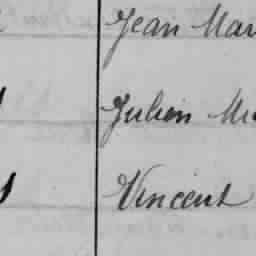 Jean Mar
Julien M
Vincent